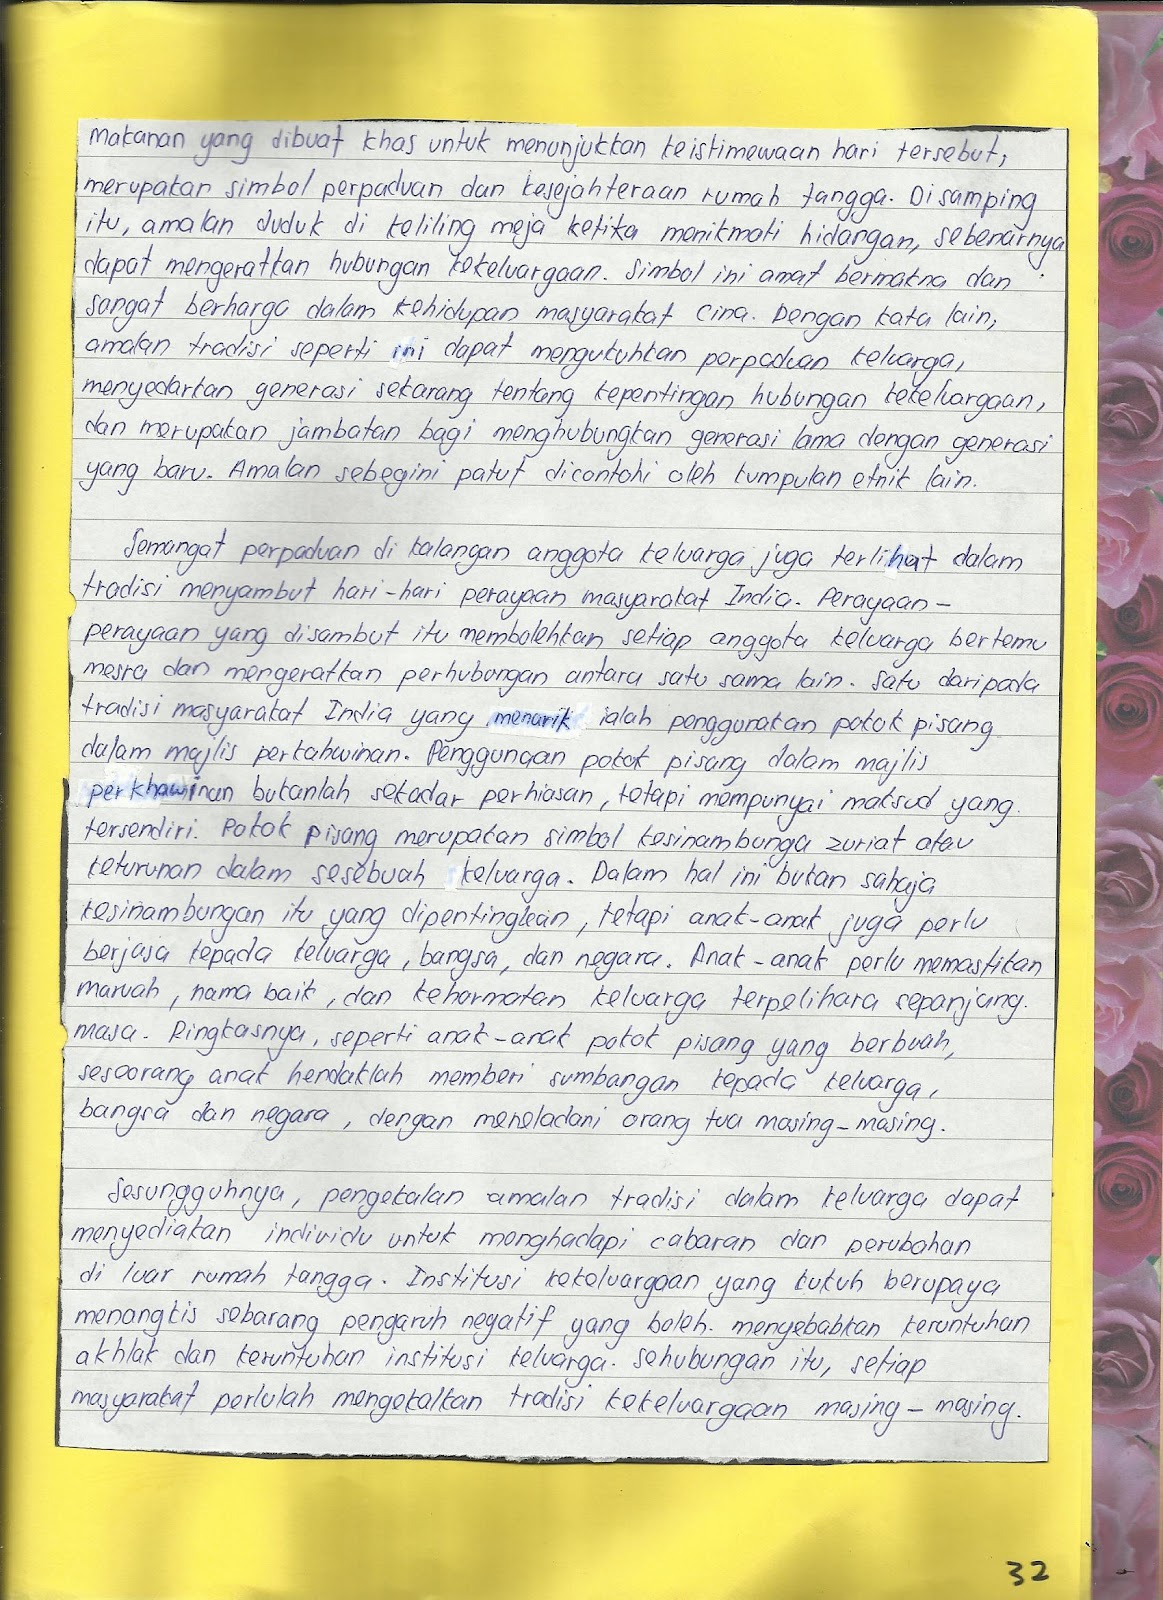 Makanan yang dibuat khas untuk menunjukkan keistimewaan hari tersebut,
merupakan simbol perpaduan dan kesejahteraan rumah tangga. Di samping
itu, amalan duduk di keliling meja ketika menikmati hidangan, sebenarnya
dapat mengeratkan hubungan kekeluargaan. Simbol ini amat bermakna dan
sangat berharga dalam kehidupan masyarakat cina. Dengan kata lain,
amalan tradisi seperti ini dapat mengukuhkan perpaduan keluarga,
menyedarkan generasi sekarang tentang kepentingan hubungan kekeluargaan,
dan merupakan jambatan bagi menghubungkan generasi lama dengan generasi
yang baru. Amalan sebegini patut dicontohi oleh kumpulan etnik lain.
Semangat perpaduan di kalangan anggota keluarga juga terlihat dalam
tradisi menyambut hari-hari perayaan masyarakat India. Perayaan-
perayaan yang disambut itu membolehkan setiap anggota keluarga bertemu
mesra dan mengeratkan perhubungan antara satu sama lain. Satu daripada
tradisi masyarakat India yang menarik ialah penggunakan pokok pisang
dalam majlis perkahwinan. Penggunaan pokok pisang dalam majlis
perkhawinan bukanlah sekadar perhiasan, tetapi mempunyai maksud yang
tersendiri. Pokok pisang merupakan simbol kesinambunga zuriat atau
keturunan dalam sesebuah keluarga. Dalam hal ini bukan sahaja
kesinambungan itu yang dipentingkan, tetapi anak-anak juga perlu
berjasa kepada keluarga, bangsa, dan negara. Anak-anak perlu memastikan
maruah, nama baik, dan kehormatan keluarga terpelihara sepanjang.
masa. Ringkasnya, seperti anak-anak pokok pisang yang berbuah,
seseorang anak hendaklah memberi sumbangan kepada keluarga,
bangsa dan negara, dengan meneladani orang tua masing-masing.
Sesungguhnya, pengekalan amalan tradisi dalam keluarga dapat
menyediakan individu untuk menghadapi cabaran dan perubahan
di luar rumah tangga. Institusi kekeluargaan yang kukuh berupaya
menangkis sebarang pengaruh negatif yang boleh. menyebabkan keruntuhan
akhlak dan keruntuhan institusi keluarga. Sehubungan itu, setiap
masyarakat perlulah mengekalkan tradisi kekeluargaan masing-masing.
32